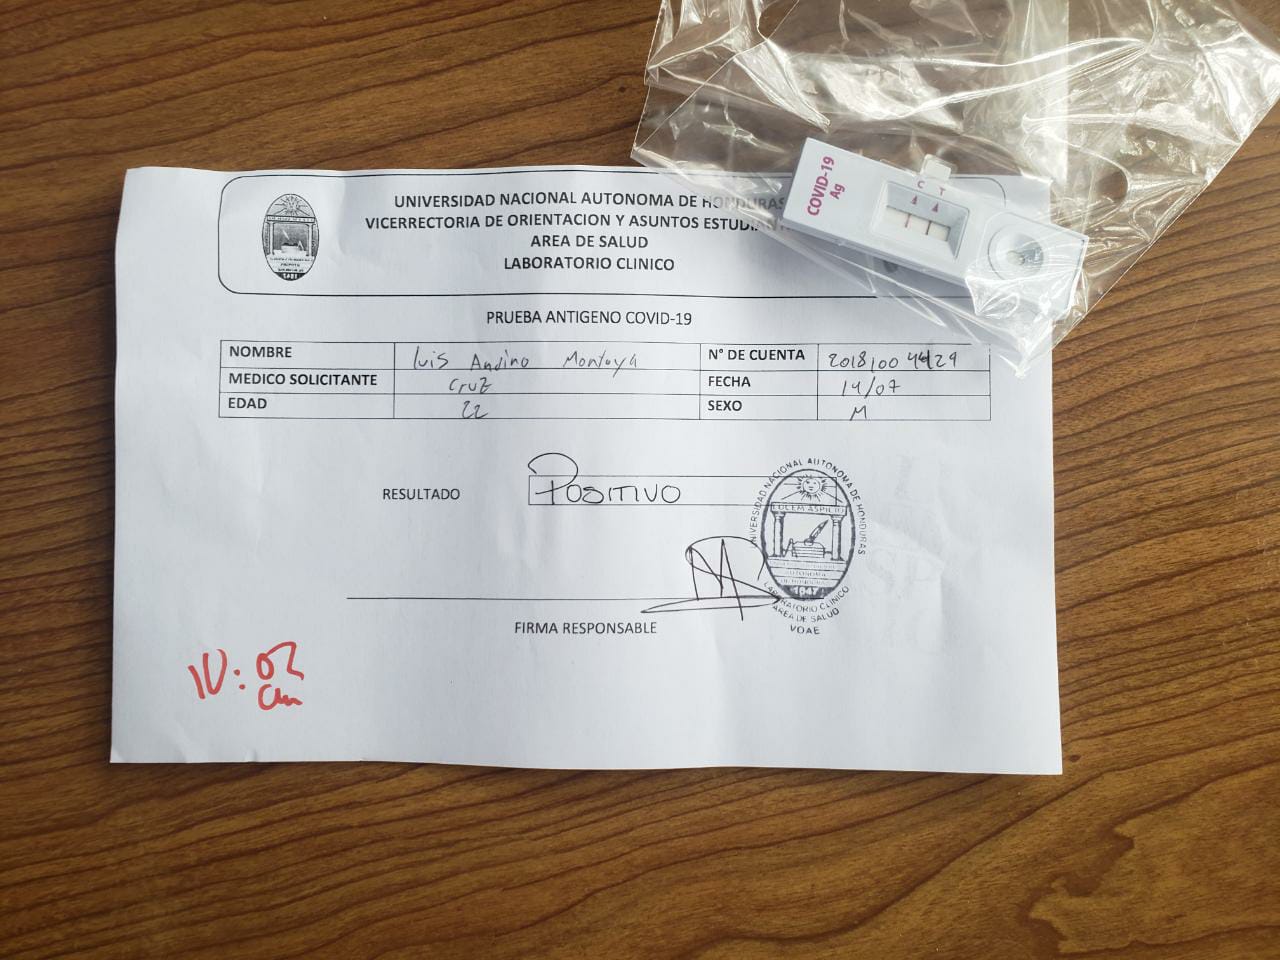 UNIVERSIDAD NACIONAL AUTONOMA DE HONDURAS
VICERRECTORIA DE ORIENTACION Y ASUNTOS ESTUDIAN
AREA DE SALUD
LABORATORIO CLINICO
COVID-19
Ag
C T
PRUEBA ANTIGENO COVID-19
NOMBRE Luis Andino Montoya N° DE CUENTA 20181004429
MEDICO SOLICITANTE Cruz FECHA 14/07
EDAD 22 SEXO M
RESULTADO POSITIVO
UNIVERSIDAD NACIONAL AUTONOMA DE HONDURAS
LUCEM ASPICIO
AUTONOMA
DE HONDURAS
1847
LABORATORIO CLINICO
AREA DE SALUD
VOAE
FIRMA RESPONSABLE
10:02
am